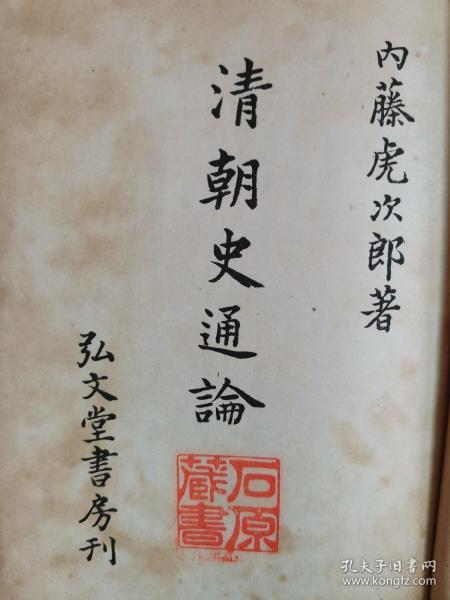 内藤虎次郎著
清朝史通論
弘文堂書房刊
石原
蔵書
孔夫子旧书网
www.kongfz.com